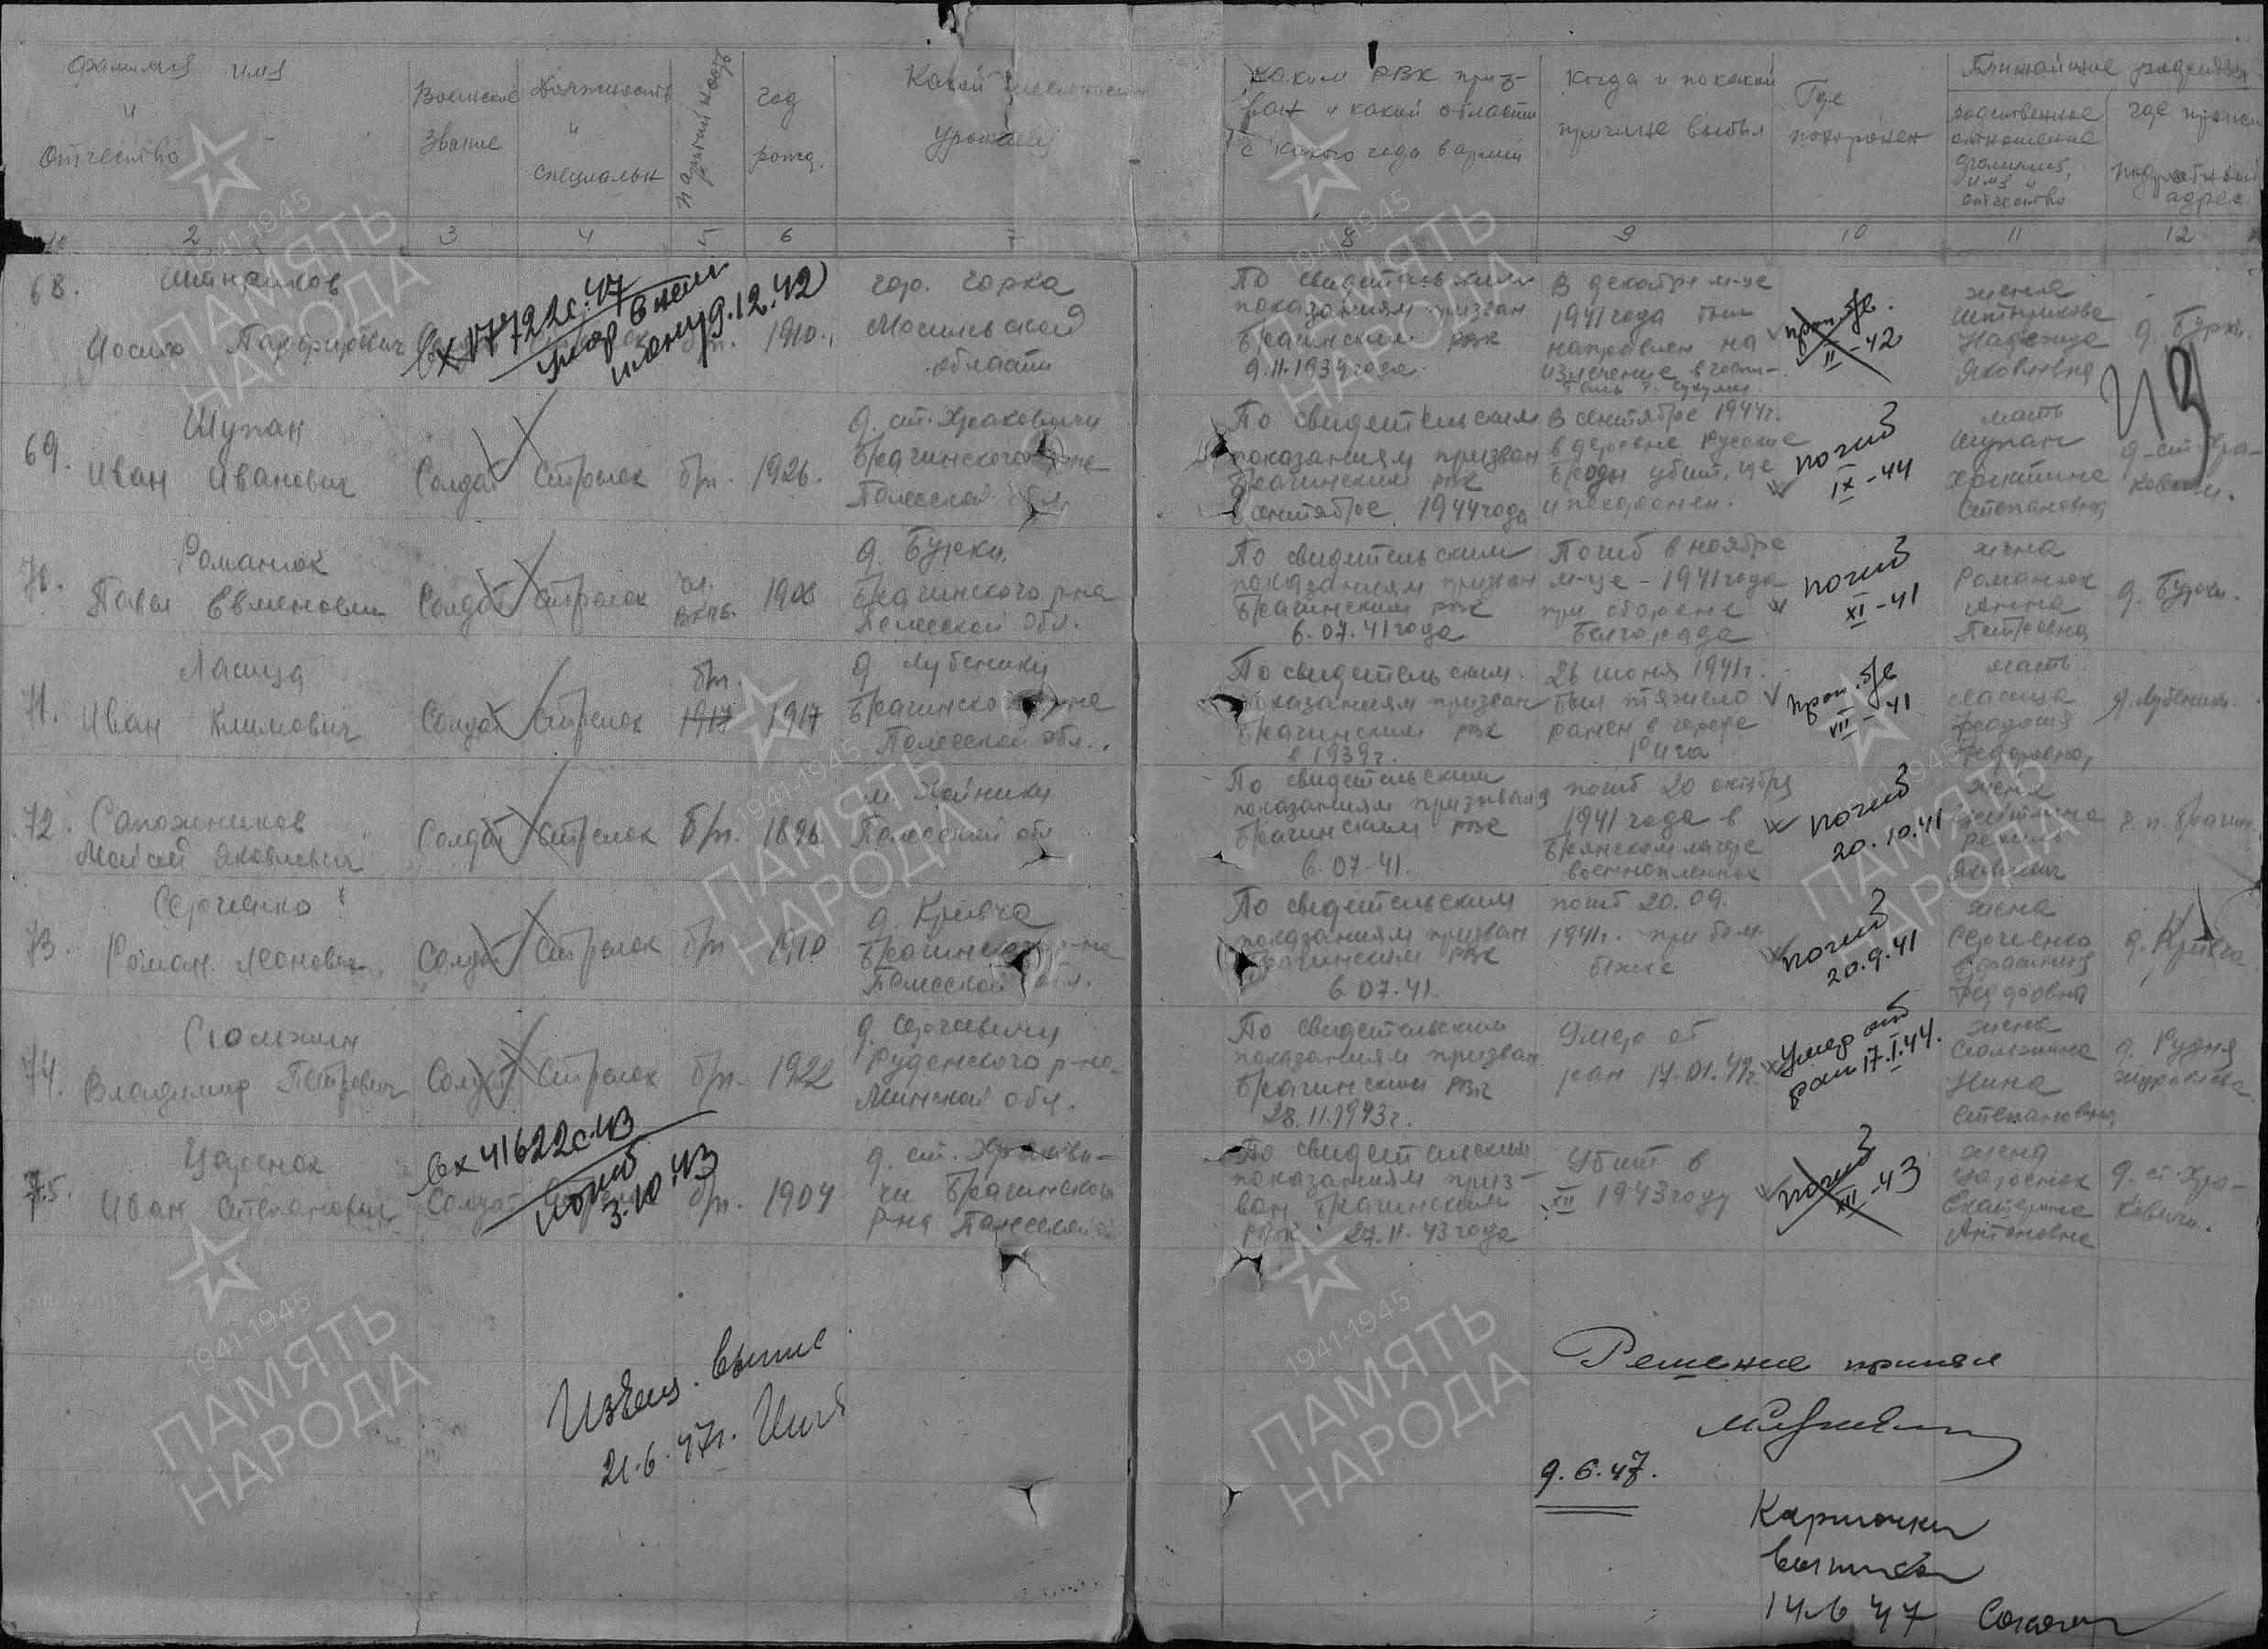 фамилия имя
и
отчество
Воинское
звание
должность
и
специальн
партийность
год
рожд.
Какой местности
урожен
каким РВК приз-
ван и какой области
с какого года в армии
когда и по какой
причине выбыл
Где
похоронен
Ближайшие родствен
родственное
отношение
фамилия,
имя и
отчество
где прожи
подробный
адрес
2 3 4 5 6 7 8 9 10 11 12
68.
Иосиф Парфирович
Вх 17722с.47
умер в плену 9.12.42
1910.
гор. Горка
Могилевской
области
По свидетельским
показаниям призван
Брагинским РВК
9.11.1939 года.
В декабре м-це
1941 года был
направлен на
излечение в госпи-
таль г. Сухуми.
проп. б/в.
II-42
жена
Надежда
Яковлевна
д. Бурки.
69.
Шупан
Иван Иванович
Солдат
Стрелок
б/п.
1926.
д. ст. Храковичи
Брагинского р-на
Полесской обл.
По свидетельским
показаниям призван
Брагинским РВК
в сентябре 1944 года
В сентябре 1944г.
в деревне Русские
Броды убит, где
и похоронен.
погиб
IX-44
мать
Шупан
Христина
Степановна
д. ст. Хра-
ковичи.
70.
Романюк
Павел Евменович
Солдат
Стрелок
чл.
ВКПб.
1908
д. Бурки.
Брагинского р-на
Полесской обл.
По свидетельским
показаниям призван
Брагинским РВК
6.07.41 года
Погиб в ноябре
м-це - 1941 года
при обороне
Белгорода
погиб
XI-41
жена
Романюк
Анна
Петровна
д. Бурки.
71.
Ласица
Иван Климович
Солдат
Стрелок
б/п.
1917
1917
д. Лубеники
Брагинского р-на
Полесской обл.
По свидетельским
показаниям призван
Брагинским РВК
в 1939г.
26 июня 1941г.
был тяжело
ранен в городе
Рига
проп. б/в
VII-41
мать
Ласица
Феодосия
Федоровна,
д. Лубеники.
72.
Сапожников
Моисей Яковлевич
Солдат
Стрелок
б/п.
1896
м. Хойники
Полесской обл
По свидетельским
показаниям призывался
Брагинским РВК
6.07-41.
погиб 20 октября
1941 года в
Брянском лагере
военнопленных
погиб
20.10.41
г.п. Брагин.
73.
Сергиенко
Роман Леонович.
Солдат
Стрелок
б/п
1910
д. Кривча
Брагинского р-на
Полесской обл.
По свидетельским
показаниям призван
Брагинским РВК
6.07.41.
погиб 20.09.
1941г. при бом
бежке
погиб
20.9.41
жена
Сергиенко
Федоровна
д. Кривча
74.
Столежин
Владимир Петрович
Солдат
Стрелок
б/п.
1922
д. Сергеевичи
Руденского р-на
Минской обл.
По свидетельским
показаниям призван
Брагинским РВК
28.11.1943г.
Умер от
ран 17.01.44г.
Умер от
ран 17.I.44.
жена
Нина
Степановна
д. Рудня
Журавлева.
75.
Царенок
Иван Степанович
Вх 41622с.43
погиб
3.10.43
Солдат
б/п.
1904
д. ст. Хракови-
чи Брагинского
р-на Полесской
По свидетельским
показаниям приз-
ван Брагинским
РВК 27.11.43 года
Убит в
XII 1943 году
погиб
XII-43
жена
Царенок
Екатерина
Антоновна
д. ст. Хра-
ковичи.
Извещ. выпис
21.6.47г.
Решение принял
9.6.47.
Карточки
выписал
14.6 47